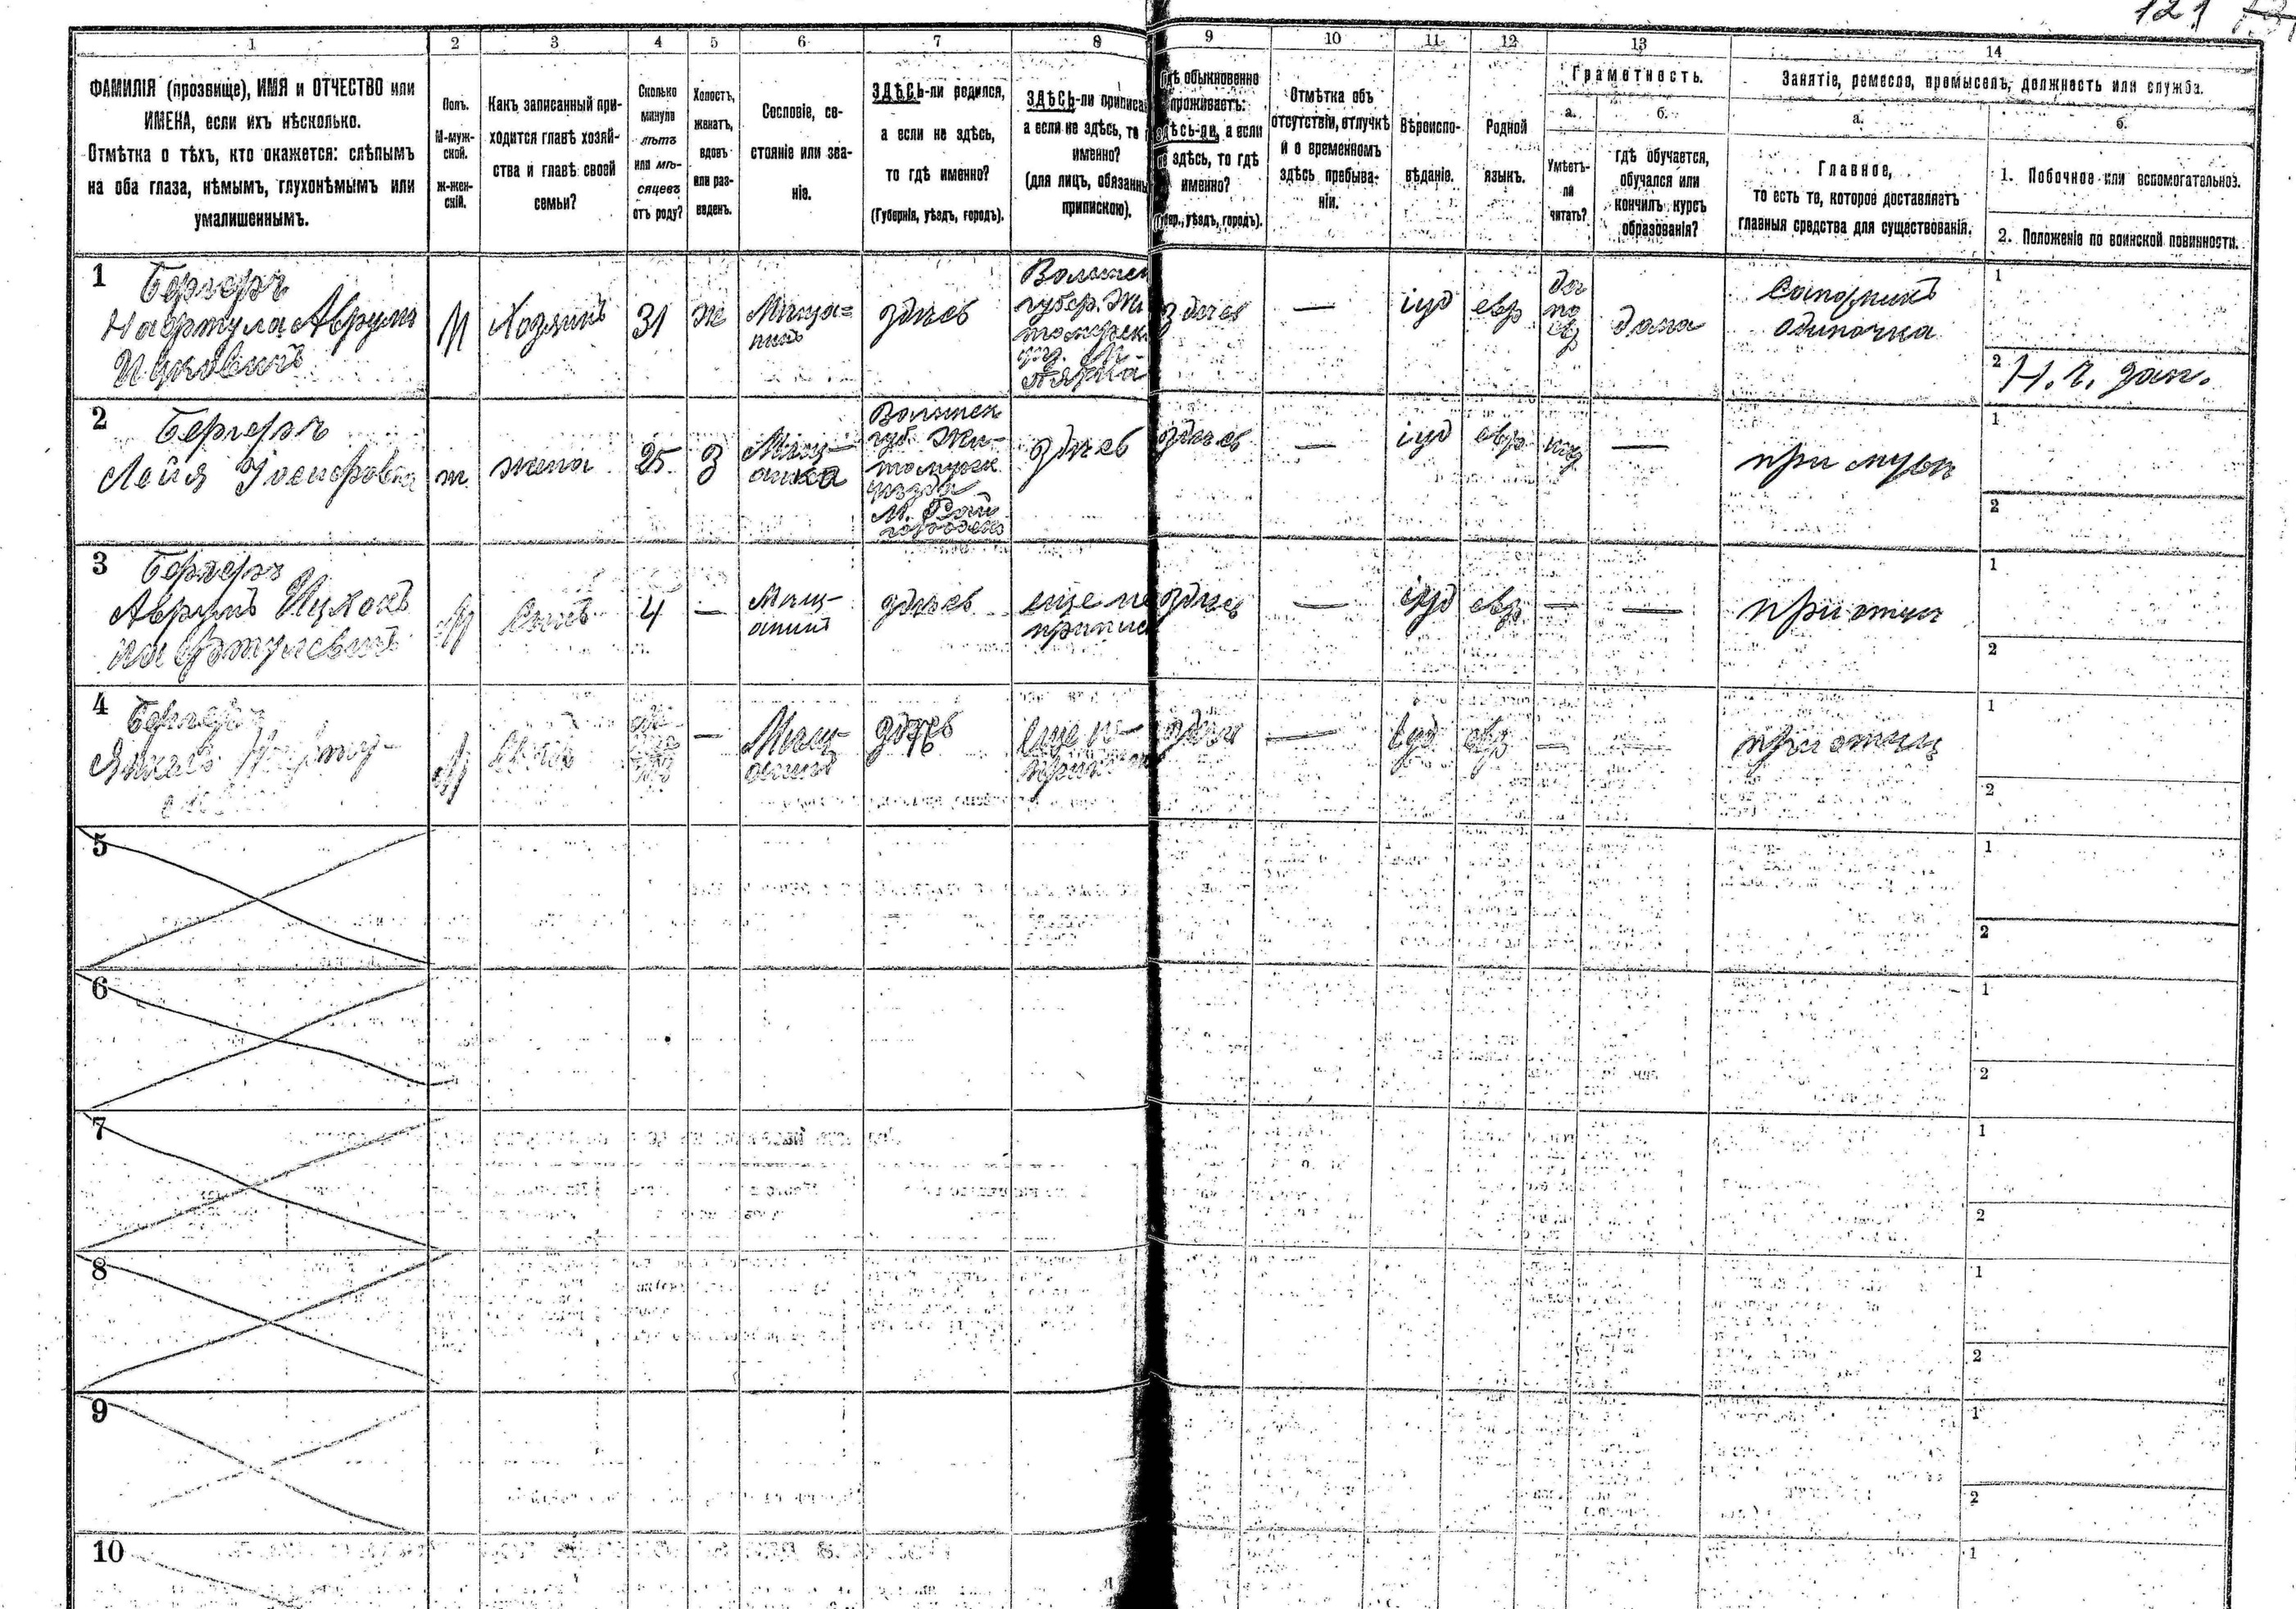 121
1 2 3 4 5 6 7 8 9 10 11 12 13 14
ФАМИЛІЯ (прозвище), ИМЯ и ОТЧЕСТВО или
ИМЕНА, если ихъ нѣсколько.
Отмѣтка о тѣхъ, кто окажется: слѣпымъ
на оба глаза, нѣмымъ, глухонѣмымъ или
умалишеннымъ.
Полъ.
М-муж-
ской.
Ж-жен-
скій.
Какъ записанный при-
ходится главѣ хозяй-
ства и главѣ своей
семьи?
Сколько
минуло
лѣтъ
или мѣ-
сяцевъ
отъ роду?
Холостъ,
женатъ,
вдовъ
или раз-
веденъ.
Сословіе, со-
стояніе или зва-
ніе.
ЗДѢСЬ-ли родился,
а если не здѣсь,
то гдѣ именно?
(Губернія, уѣздъ, городъ).
ЗДѢСЬ-ли приписа
а если не здѣсь, то
именно?
(для лицъ, обязанны
припискою).
гдѣ обыкновенно
проживаетъ:
здѣсь-ли, а если
не здѣсь, то гдѣ
именно?
уѣздъ, городъ).
Отмѣтка объ
отсутствіи, отлучкѣ
и о временномъ
здѣсь пребыва-
ніи.
Вѣроиспо-
вѣданіе.
Родной
языкъ.
Грамотность.
а.
Умѣетъ-
ли
читать?
б.
гдѣ обучается,
обучался или
кончилъ курсъ
образованія?
Занятіе, ремесло, промыселъ, должность или служба.
а.
Главное,
то есть то, которое доставляетъ
главныя средства для существованія.
б.
1. Побочное или вспомогательное.
2. Положеніе по воинской повинности.
1
Бергеръ
Нафтула Аврум
Ицковичъ
М
Хозяинъ
31
ж
Мѣща=
нинъ
здѣсь
Волынск
губер. Жи
томирск
здѣсь
—
іуд
евр
да
по
евр
дома
Сапожникъ
одиночка
1
2 Н. ч. зап.
2
Бергеръ
Лейя Іосифовна
ж.
жена
25
З
Мѣщ-
анка
Волынск
губ. Жи-
томирск
уѣзда
М. Рай
городокъ
здѣсь
здѣсь
—
іуд
евр
—
при мужѣ
1
2
3
Бергеръ
Аврумъ Ицкокъ
Нафтулевичъ
М
Сынъ
4
—
Мѣщ-
анинъ
здѣсь
еще не
приписа
здѣсь
—
іуд
евр
—
—
при отцѣ
1
2
4
Бергеръ
М
Сынъ
—
Мѣщ-
анинъ
здѣсь
еще не
здѣсь
—
іуд
евр
—
—
при отцѣ
1
2
5
1
2
6
1
2
7
1
2
8
1
2
9
1
2
10
1